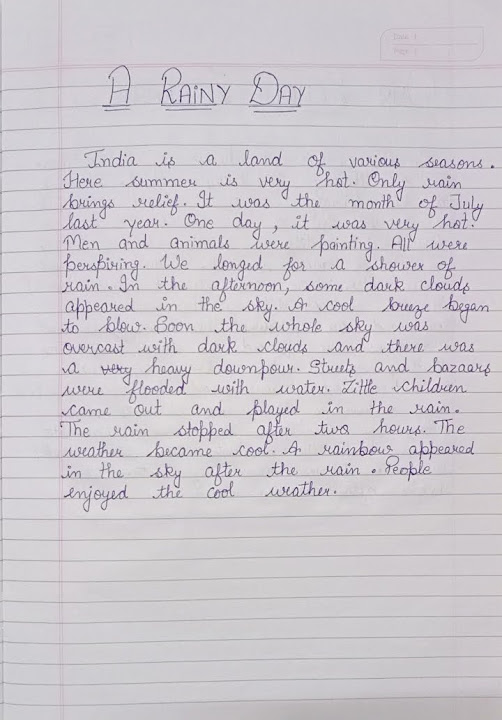 A RAINY DAY
India is a land of various seasons.
Here summer is very hot. Only rain
brings relief. It was the month of July
last year. One day, it was very hot.
Men and animals were painting. All were
perspiring. We longed for a shower of
rain. In the afternoon, some dark clouds
appeared in the sky. A cool breeze began
to blow. Soon the whole sky was
overcast with dark clouds and there was
a very heavy downpour. Streets and bazaars
were flooded with water. Little children
came out and played in the rain.
The rain stopped after two hours. The
weather became cool. A rainbow appeared
in the sky after the rain. People
enjoyed the cool weather.